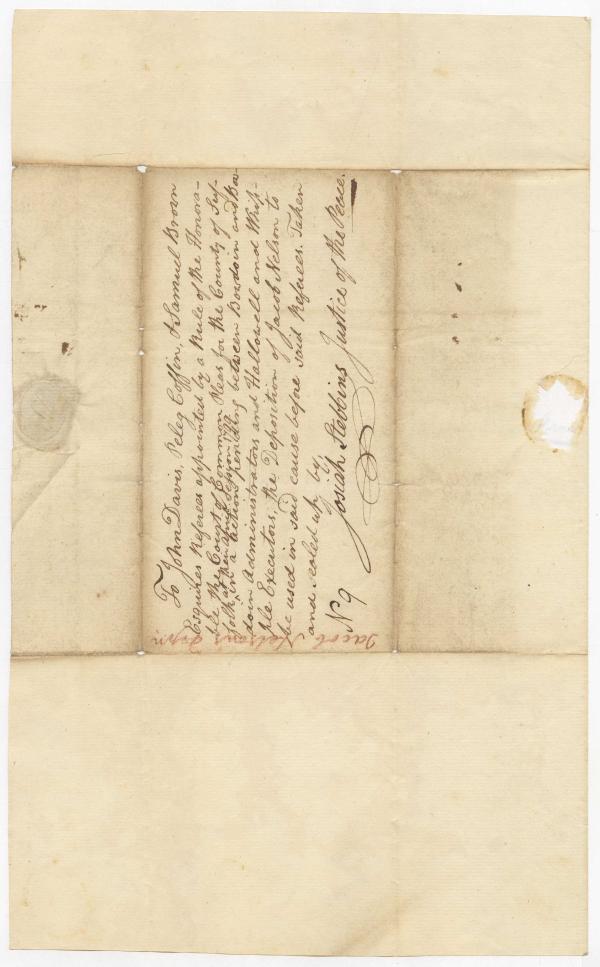 To John Davis, Peleg Coffin, & Samuel Brown
Esquires Referees appointed by a Rule of the Honora-
ble the Court of Common Pleas for the County of Suf-
folk, at their April Session 1799
in a action pending between Bowdoin and Bow-
doin Administrators and Hallowell and Whip-
ple Executors, the Deposition of Jacob Nelson to
be used in said cause before said Referees. Taken
and sealed up by
Josiah Stebbins Justice of the Peace.
No 9
Jacob Nelson's Depn